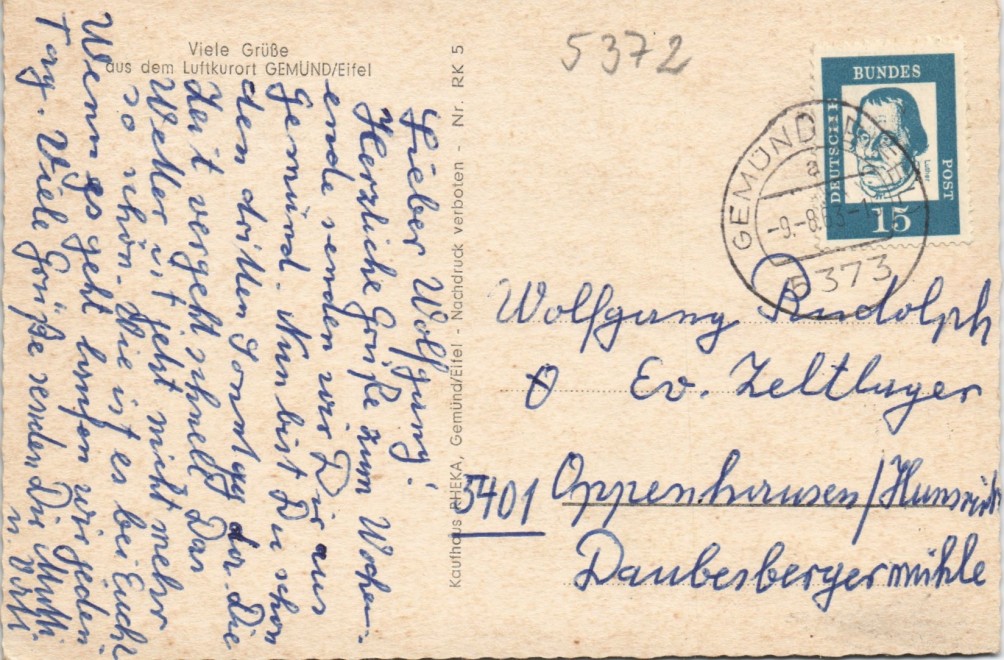 Viele Grüße
aus dem Luftkurort GEMÜND/Eifel
Lieber Wolfgang!
Herzliche Grüße zum Wochen-
ende senden wir Dir aus
Gemünd. Nun bist Du schon
den dritten Sonntag da. Die
Zeit vergeht schnell. Das
Wetter ist jetzt nicht mehr
so schön. Wie ist es bei Euch?
Wenn es geht laufen wir jeden
Tag. Viele Grüße senden Dir Mutti
u. Vati
Kaufhaus RHEKA, Gemünd/Eifel - Nachdruck verboten - Nr. RK 5
5372
DEUTSCHE
BUNDES
POST
Luther
15
GEMÜND EIFEL
a
-9.-8.63-
5373
Wolfgang Rudolph
Ev. Zeltlager
5401 Oppenhausen/Hunsrück
Daubesbergermühle